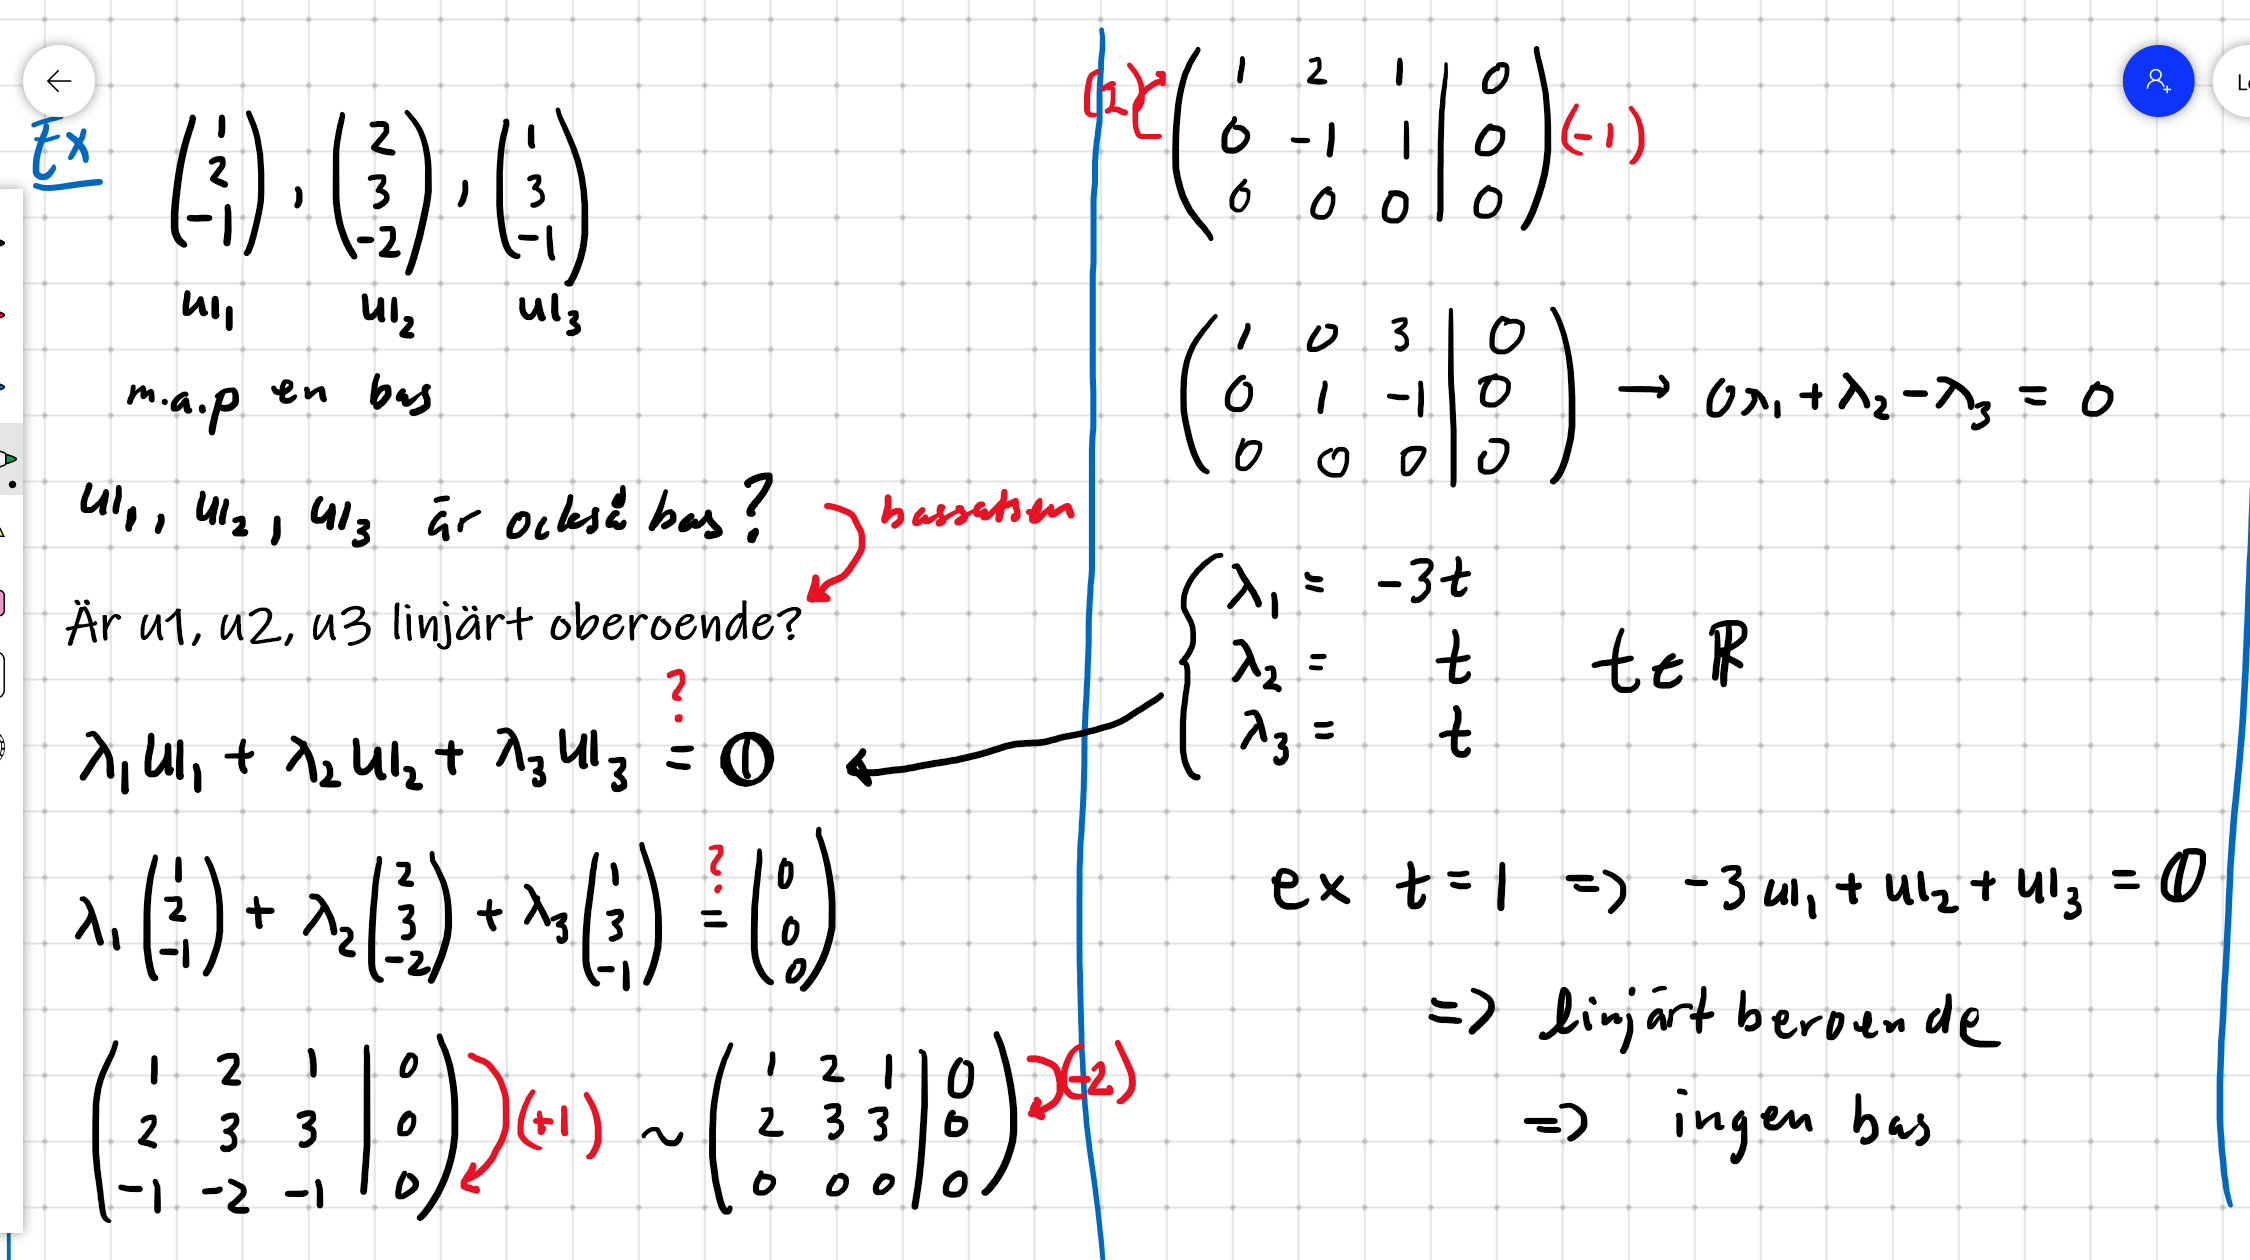 Ex
( 1 2 -1 ) , ( 2 3 -2 ) , ( 1 3 -1 )
u1₁ u1₂ u1₃
m.a.p en bas
u1₁, u1₂, u1₃ är också bas?
bassatsen
Är u1, u2, u3 linjärt oberoende?
?
λ₁u1₁ + λ₂u1₂ + λ₃u1₃ = 0
?
λ₁ ( 1 2 -1 ) + λ₂ ( 2 3 -2 ) + λ₃ ( 1 3 -1 ) = ( 0 0 0 )
( 1 2 1 | 0 ) ( 1 2 1 | 0 ) (-2)
( 2 3 3 | 0 ) (+1) ~ ( 2 3 3 | 0 )
( -1 -2 -1 | 0 ) ( 0 0 0 | 0 )
(2) ( 1 2 1 | 0 )
( 0 -1 1 | 0 ) (-1)
( 0 0 0 | 0 )
( 1 0 3 | 0 )
( 0 1 -1 | 0 ) → 0λ₁ + λ₂ - λ₃ = 0
( 0 0 0 | 0 )
{ λ₁ = -3t
λ₂ = t t ∈ ℝ
λ₃ = t
ex t = 1 => -3u1₁ + u1₂ + u1₃ = 0
=> linjärt beroende
=> ingen bas